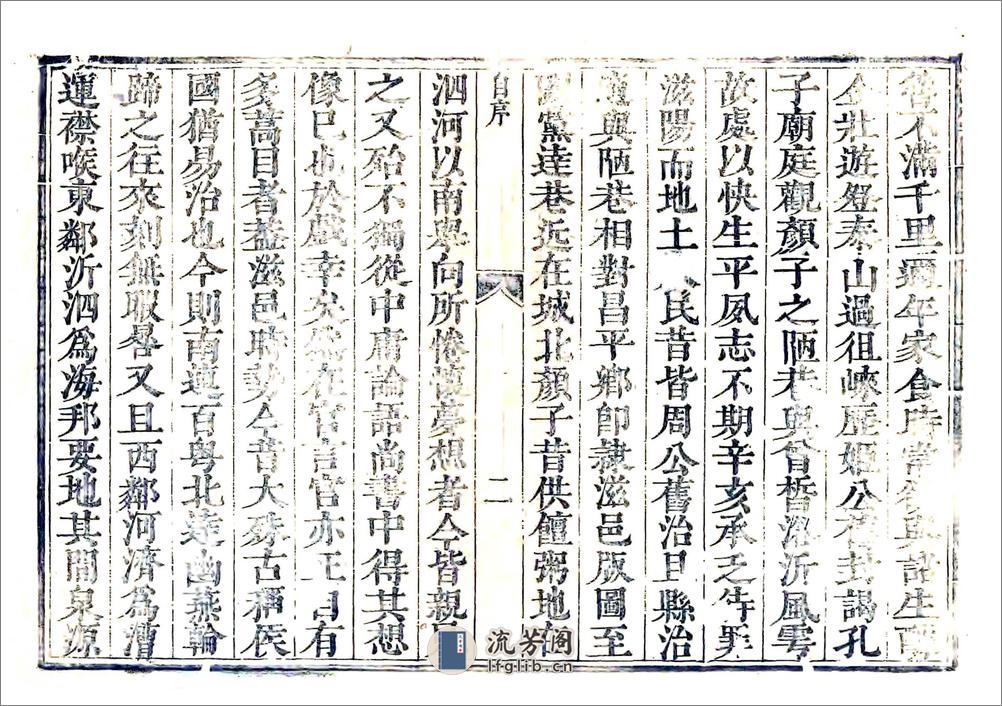 不滿千里邇年家食時常欲與諸生
壯遊登泰山過徂峽歷姬公舊封謁孔
子廟庭觀顏子之陋巷與曾皙浴沂風雩
故處以快生平夙志不期辛亥承乏
滋陽而地土人民昔皆周公舊治且縣治
與陋巷相對昌平鄉即隸滋邑版圖至
黨逵巷近在城北顏子昔供饘粥地
自序
二
泗河以南與向所惓懷夢想者今皆親
之又殆不獨從中庸論語尚書中得其想
像已也於戲幸矣然在官言官亦正自有
多蒿目者蓋滋邑時勢今昔大殊古稱侯
國猶易治也今則南連百粤北達幽燕輪
蹄之往來刻無暇晷又且西鄰河濟為漕
運襟喉東鄰沂泗為海邦要地其間泉源
流芳阁
lfglib.cn